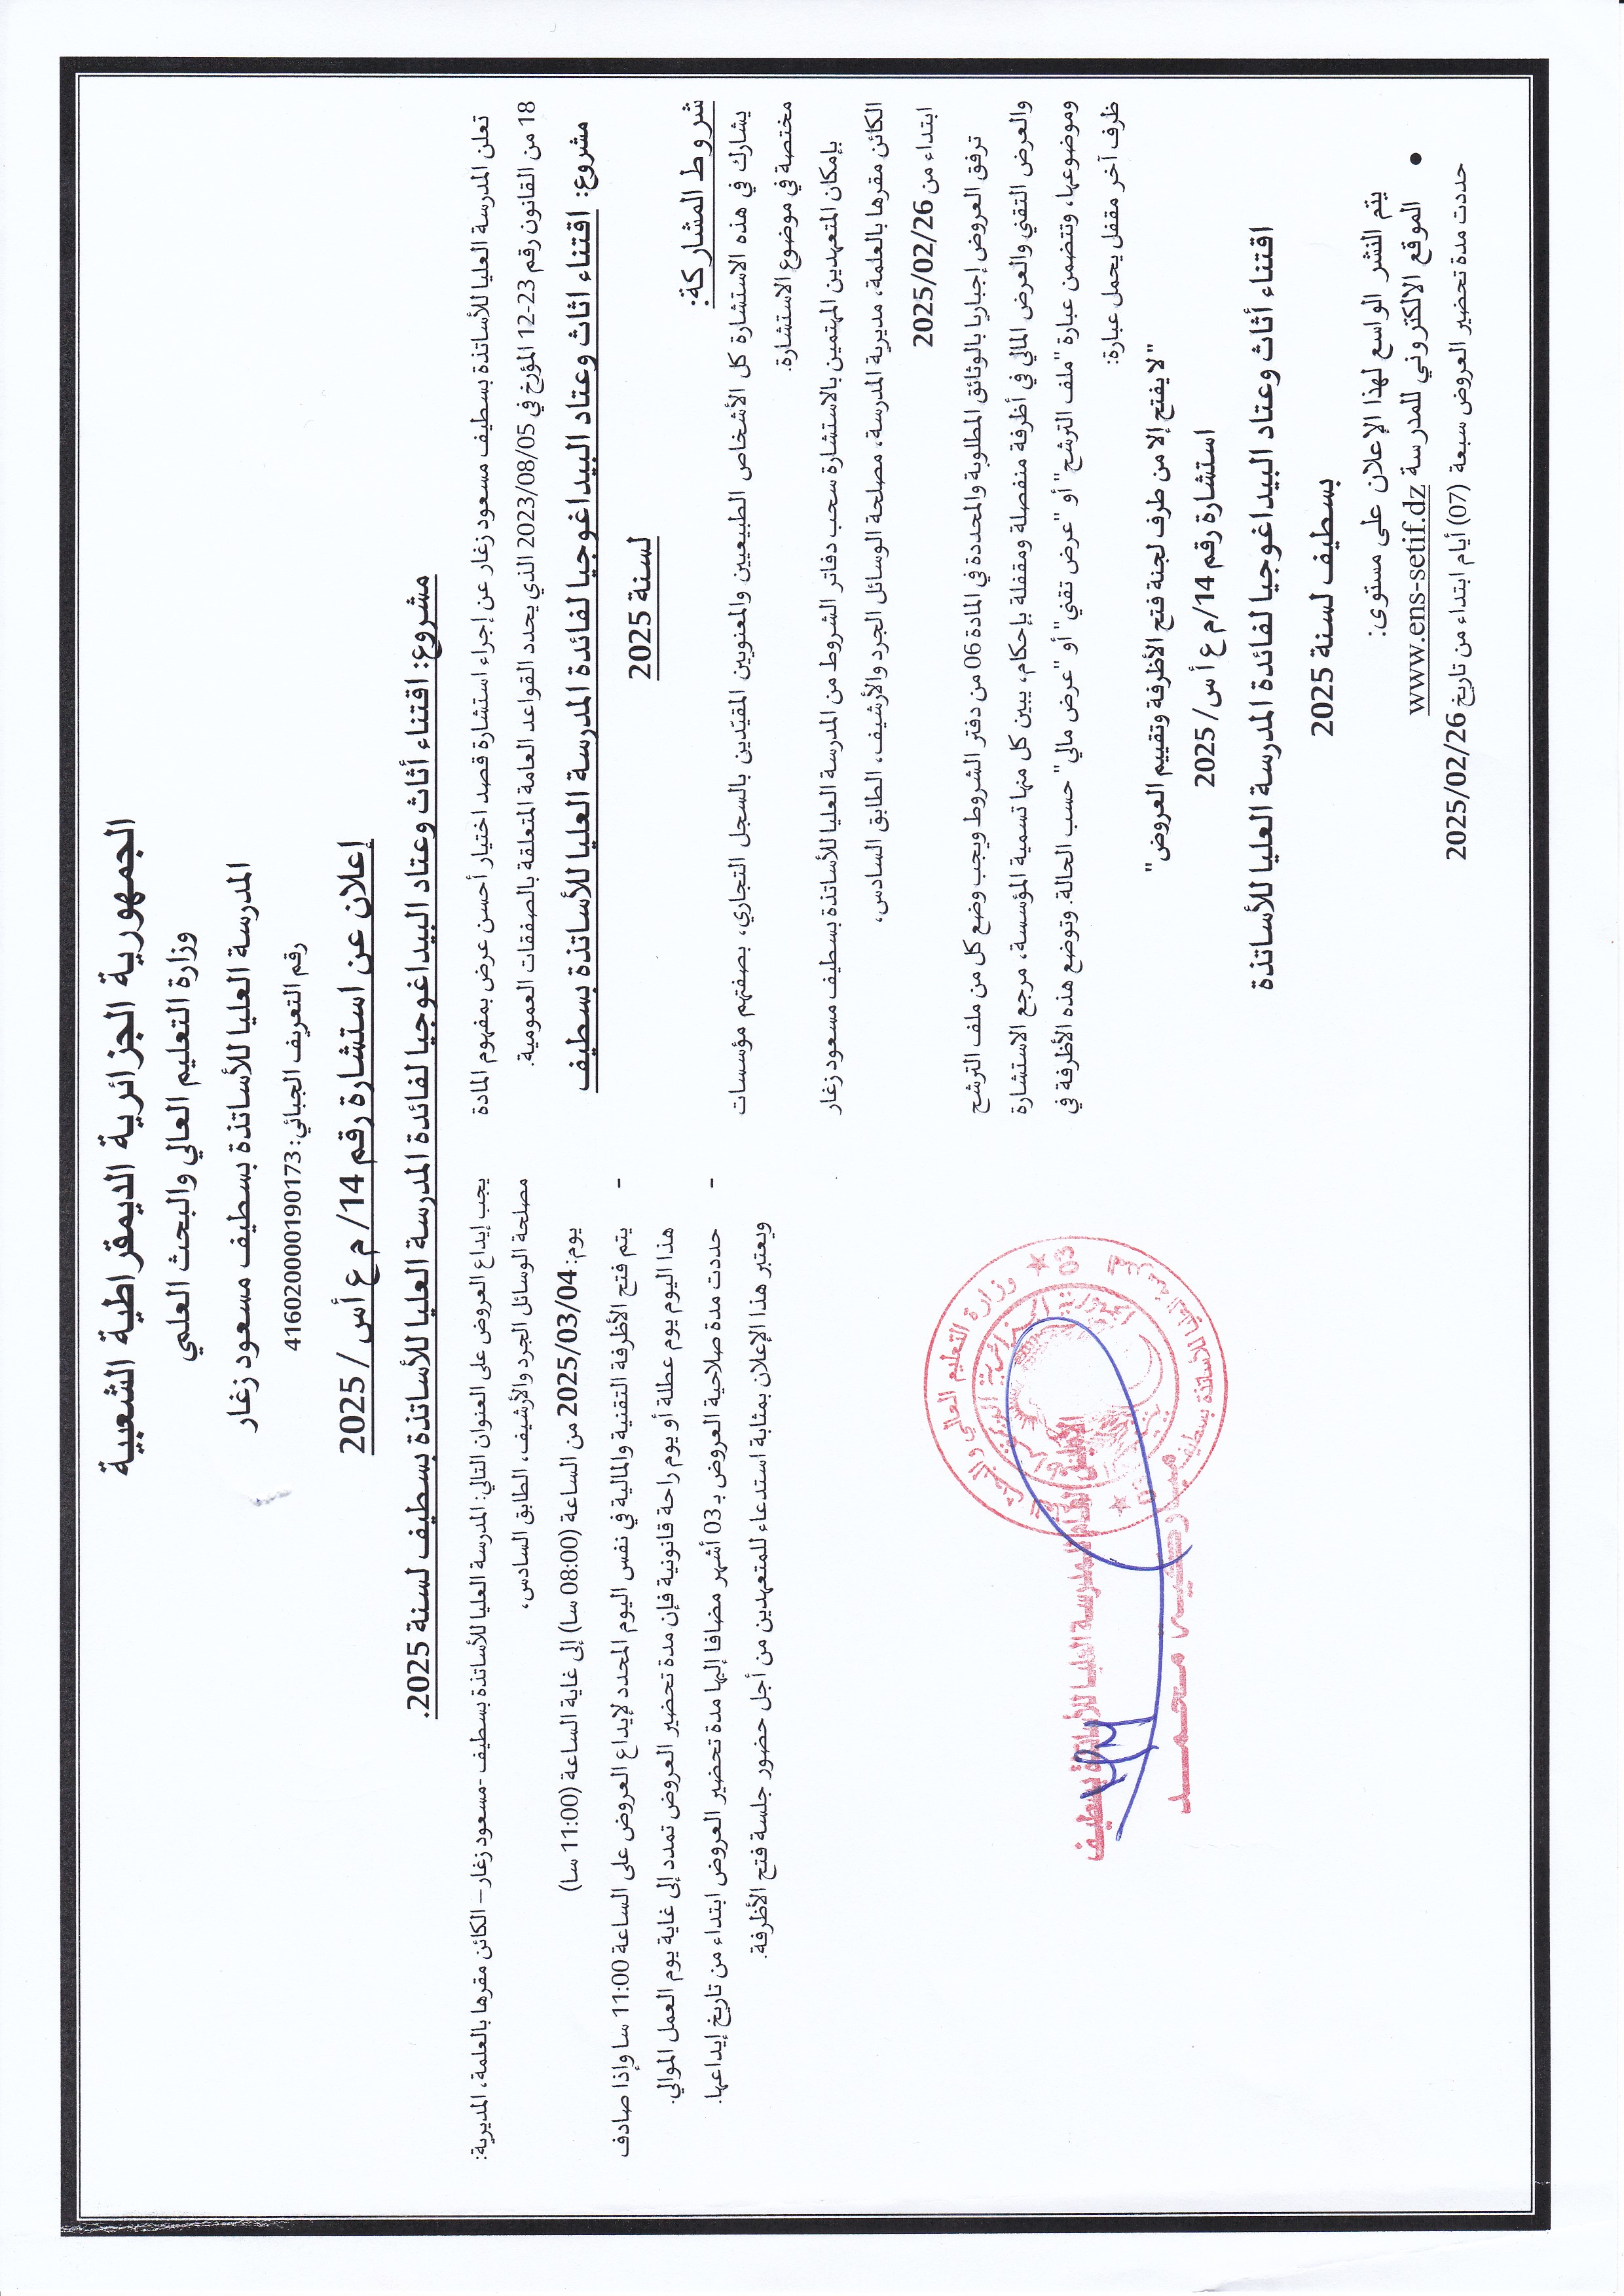 الجمهورية الجزائرية الديمقراطية الشعبية
وزارة التعليم العالي والبحث العلمي
المدرسة العليا للأساتذة بسطيف مسعود زغار
رقم التعريف الجبائي: 416020000190173
إعلان عن استشارة رقم 14/ م ع أ س / 2025
مشروع: اقتناء أثاث وعتاد البيداغوجيا لفائدة المدرسة العليا للأساتذة بسطيف لسنة 2025.
تعلن المدرسة العليا للأساتذة بسطيف مسعود زغار عن إجراء استشارة قصد اختيار أحسن عرض بمفهوم المادة
18 من القانون رقم 23-12 المؤرخ في 2023/08/05 الذي يحدد القواعد العامة المتعلقة بالصفقات العمومية.
مشروع: اقتناء اثاث وعتاد البيداغوجيا لفائدة المدرسة العليا للأساتذة بسطيف
لسنة 2025
شروط المشاركة:
يشارك في هذه الاستشارة كل الأشخاص الطبيعيين والمعنويين المقيّدين بالسجل التجاري، بصفتهم مؤسسات
مختصة في موضوع الاستشارة.
بإمكان المتعهدين المهتمين بالاستشارة سحب دفاتر الشروط من المدرسة العليا للأساتذة بسطيف مسعود زغار
الكائن مقرها بالعلمة، مديرية المدرسة، مصلحة الوسائل الجرد والأرشيف، الطابق السادس،
ابتداء من 2025/02/26
ترفق العروض إجباريا بالوثائق المطلوبة والمحددة في المادة 06 من دفتر الشروط ويجب وضع كل من ملف الترشح
والعرض التقني والعرض المالي في أظرفة منفصلة ومقفلة بإحكام، يبين كل منها تسمية المؤسسة، مرجع الاستشارة
وموضوعها، وتتضمن عبارة "ملف الترشح" أو "عرض تقني" أو "عرض مالي" حسب الحالة. وتوضع هذه الأظرفة في
ظرف آخر مقفل يحمل عبارة:
"لا يفتح إلا من طرف لجنة فتح الأظرفة وتقييم العروض"
استشارة رقم 14/م ع أ س/ 2025
اقتناء أثاث وعتاد البيداغوجيا لفائدة المدرسة العليا للأساتذة
بسطيف لسنة 2025
يتم النشر الواسع لهذا الإعلان على مستوى:
• الموقع الالكتروني للمدرسة www.ens-setif.dz
حددت مدة تحضير العروض سبعة (07) أيام ابتداء من تاريخ 2025/02/26
يجب إيداع العروض على العنوان التالي: المدرسة العليا للأساتذة بسطيف -مسعود زغار– الكائن مقرها بالعلمة، المديرية:
مصلحة الوسائل الجرد والأرشيف، الطابق السادس،
يوم: 2025/03/04 من الساعة (08:00 سا) إلى غاية الساعة (11:00 سا)
- يتم فتح الأظرفة التقنية والمالية في نفس اليوم المحدد لإيداع العروض على الساعة 11:00 سا وإذا صادف
هذا اليوم يوم عطلة أو يوم راحة قانونية فإن مدة تحضير العروض تمدد إلى غاية يوم العمل الموالي.
- حددت مدة صلاحية العروض بـ 03 أشهر مضافا إليها مدة تحضير العروض ابتداء من تاريخ إيداعها.
ويعتبر هذا الإعلان بمثابة استدعاء للمتعهدين من أجل حضور جلسة فتح الأظرفة.
وزارة التعليم العالي و البحث
الجمهورية الجزائرية الديمقراطية
03
الأمين العام للمدرسة العليا للأساتذة بسطيف
محمد